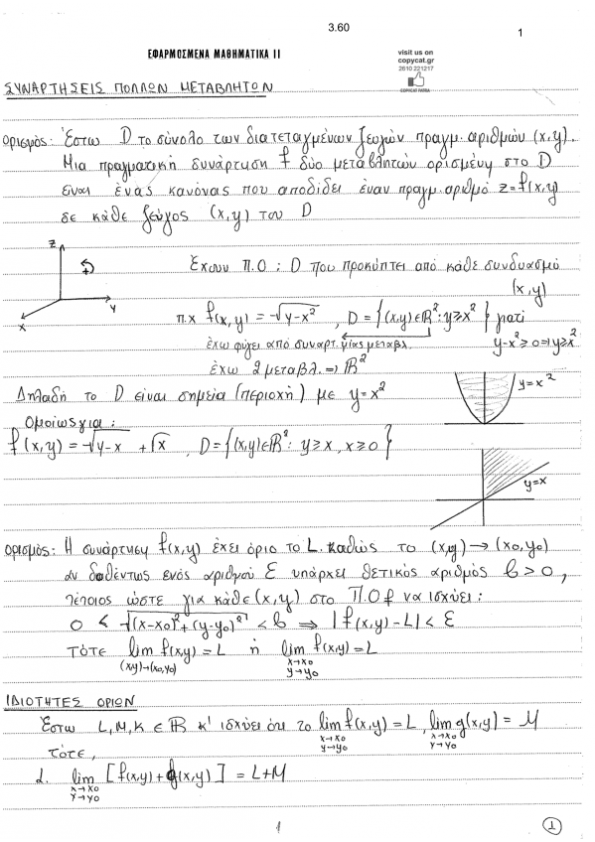 3.60
1
ΕΦΑΡΜΟΣΜΕΝΑ ΜΑΘΗΜΑΤΙΚΑ ΙΙ
visit us on
copycat.gr
2610.221217
ΣΥΝΑΡΤΗΣΕΙΣ ΠΟΛΛΩΝ ΜΕΤΑΒΛΗΤΩΝ
Ορισμός: Έστω D το σύνολο των διατεταγμένων ζευγών πραγμ. αριθμών (x,y).
Μια πραγματική συνάρτηση f δύο μεταβλητών ορισμένη στο D
είναι ένας κανόνας που αποδίδει έναν πραγμ. αριθμό z=f(x,y)
σε κάθε ζεύγος (x,y) του D
z
y
x
Έχουν Π.Ο : D που προκύπτει από κάθε συνδυασμό
(x,y)
π.χ f(x,y) = √(y-x²) , D = {(x,y)∈ℝ²: y≥x²} γιατί
y-x²≥0⇒y≥x²
έχω φύγει από συναρτ. μίας μεταβλ.
έχω 2 μεταβλ. ⇒ ℝ²
Δηλαδή το D είναι σημεία (περιοχή) με y=x²
y=x²
Ομοίως για:
f(x,y) = √(y-x) + √x , D={(x,y)∈ℝ²: y≥x, x≥0}
y=x
Ορισμός: Η συνάρτηση f(x,y) έχει όριο το L καθώς το (x,y) → (x₀,y₀)
αν δοθέντως ενός αριθμού ε υπάρχει θετικός αριθμός δ>0,
τέτοιος ώστε για κάθε (x,y) στο Π.Ο f να ισχύει:
0 < √((x-x₀)²+(y-y₀)²) < δ ⇒ |f(x,y)-L| < ε
τότε lim f(x,y) = L ή lim f(x,y) = L
(x,y)→(x₀,y₀) x→x₀
y→y₀
ΙΔΙΟΤΗΤΕΣ ΟΡΙΩΝ
Έστω L,M,K ∈ ℝ κ' ισχύει ότι το lim f(x,y) = L, lim g(x,y) = M
x→x₀ x→x₀
y→y₀ y→y₀
τότε,
1. lim [f(x,y) + g(x,y)] = L+M
x→x₀
y→y₀
1
1